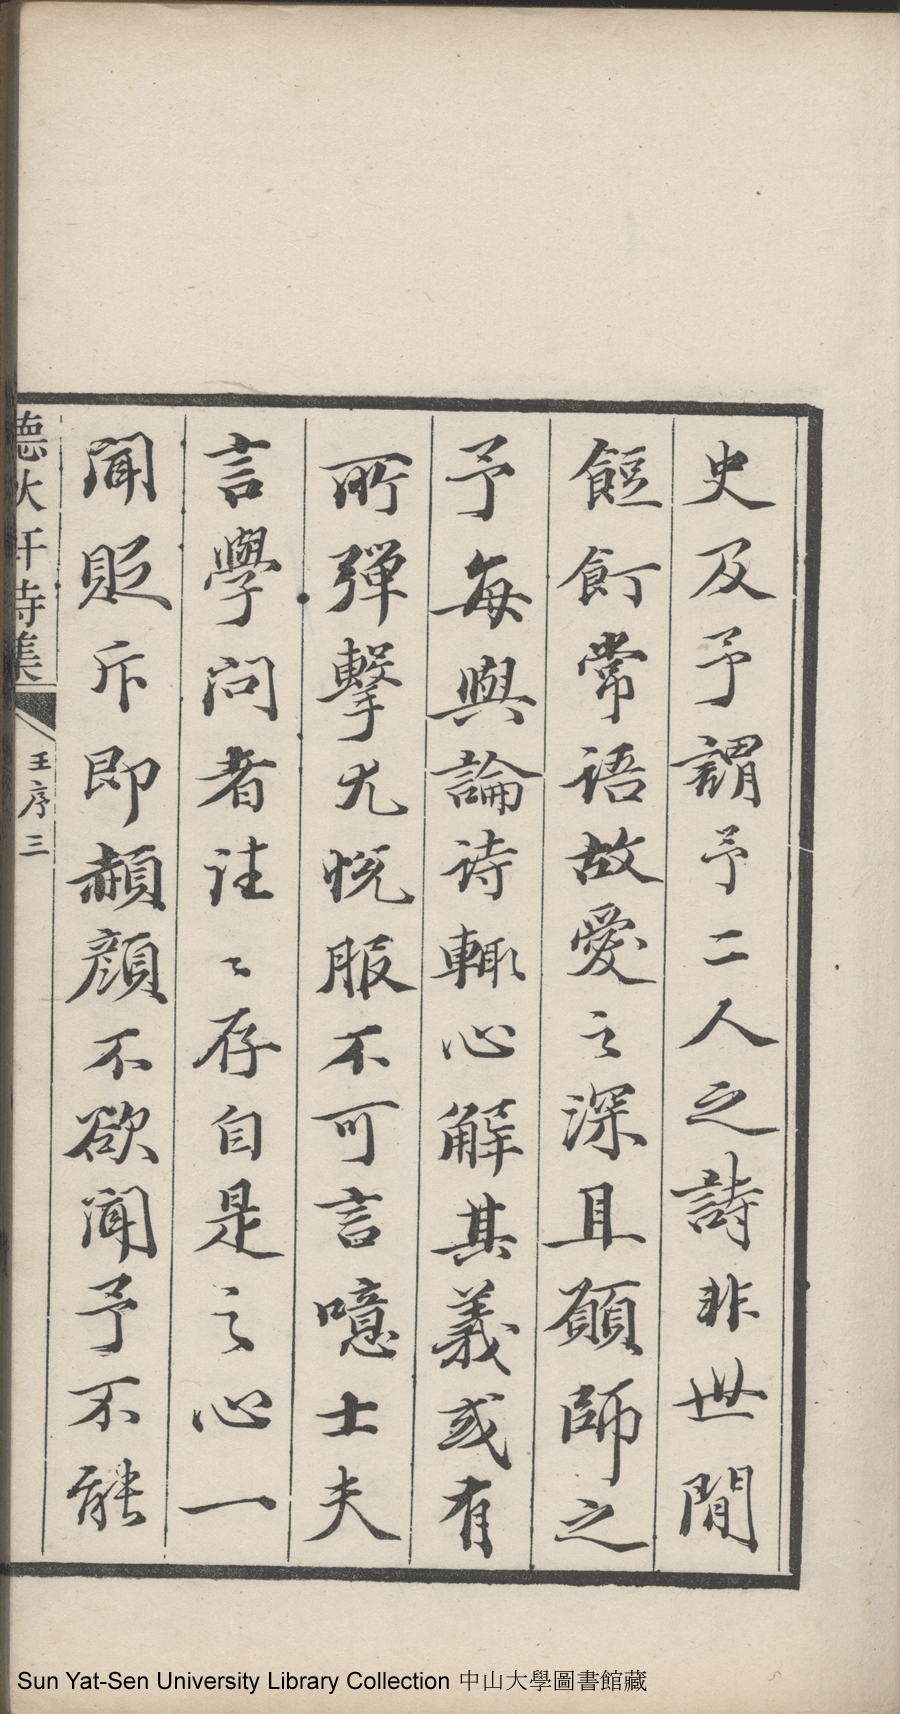 史及予謂予二人之詩非世閒
餖飣常語故愛之深且願師之
予每與論詩輒心解其義或有
所彈擊尤悅服不可言噫士夫
言學问者往〻存自是之心一
聞貶斥即赬顏不欲聞予不能
德水軒詩集
王序三
Sun Yat-Sen University Library Collection 中山大學圖書館藏